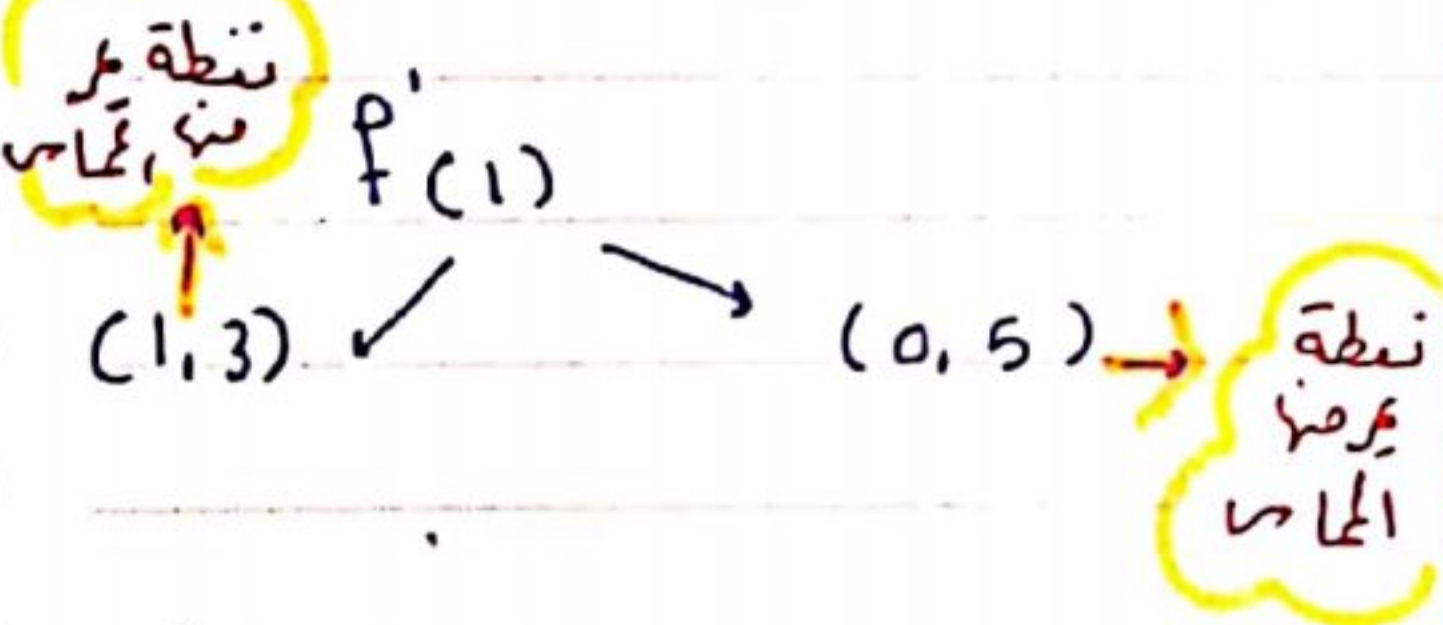 نقطة يمر
منها المماس
f'(1)
(1,3)
(0,5)
نقطة
يمر منها
المماس